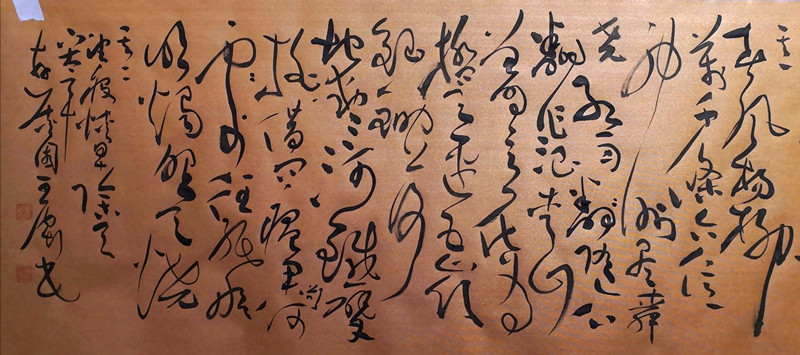 其二
春风杨柳
万千条六亿
神州尽舜
尧红雨随心
翻作浪青山
着意化为
桥天连五岭
银锄落
地动三河铁臂
摇借问瘟君欲何
往纸船
明烛照天烧
其二